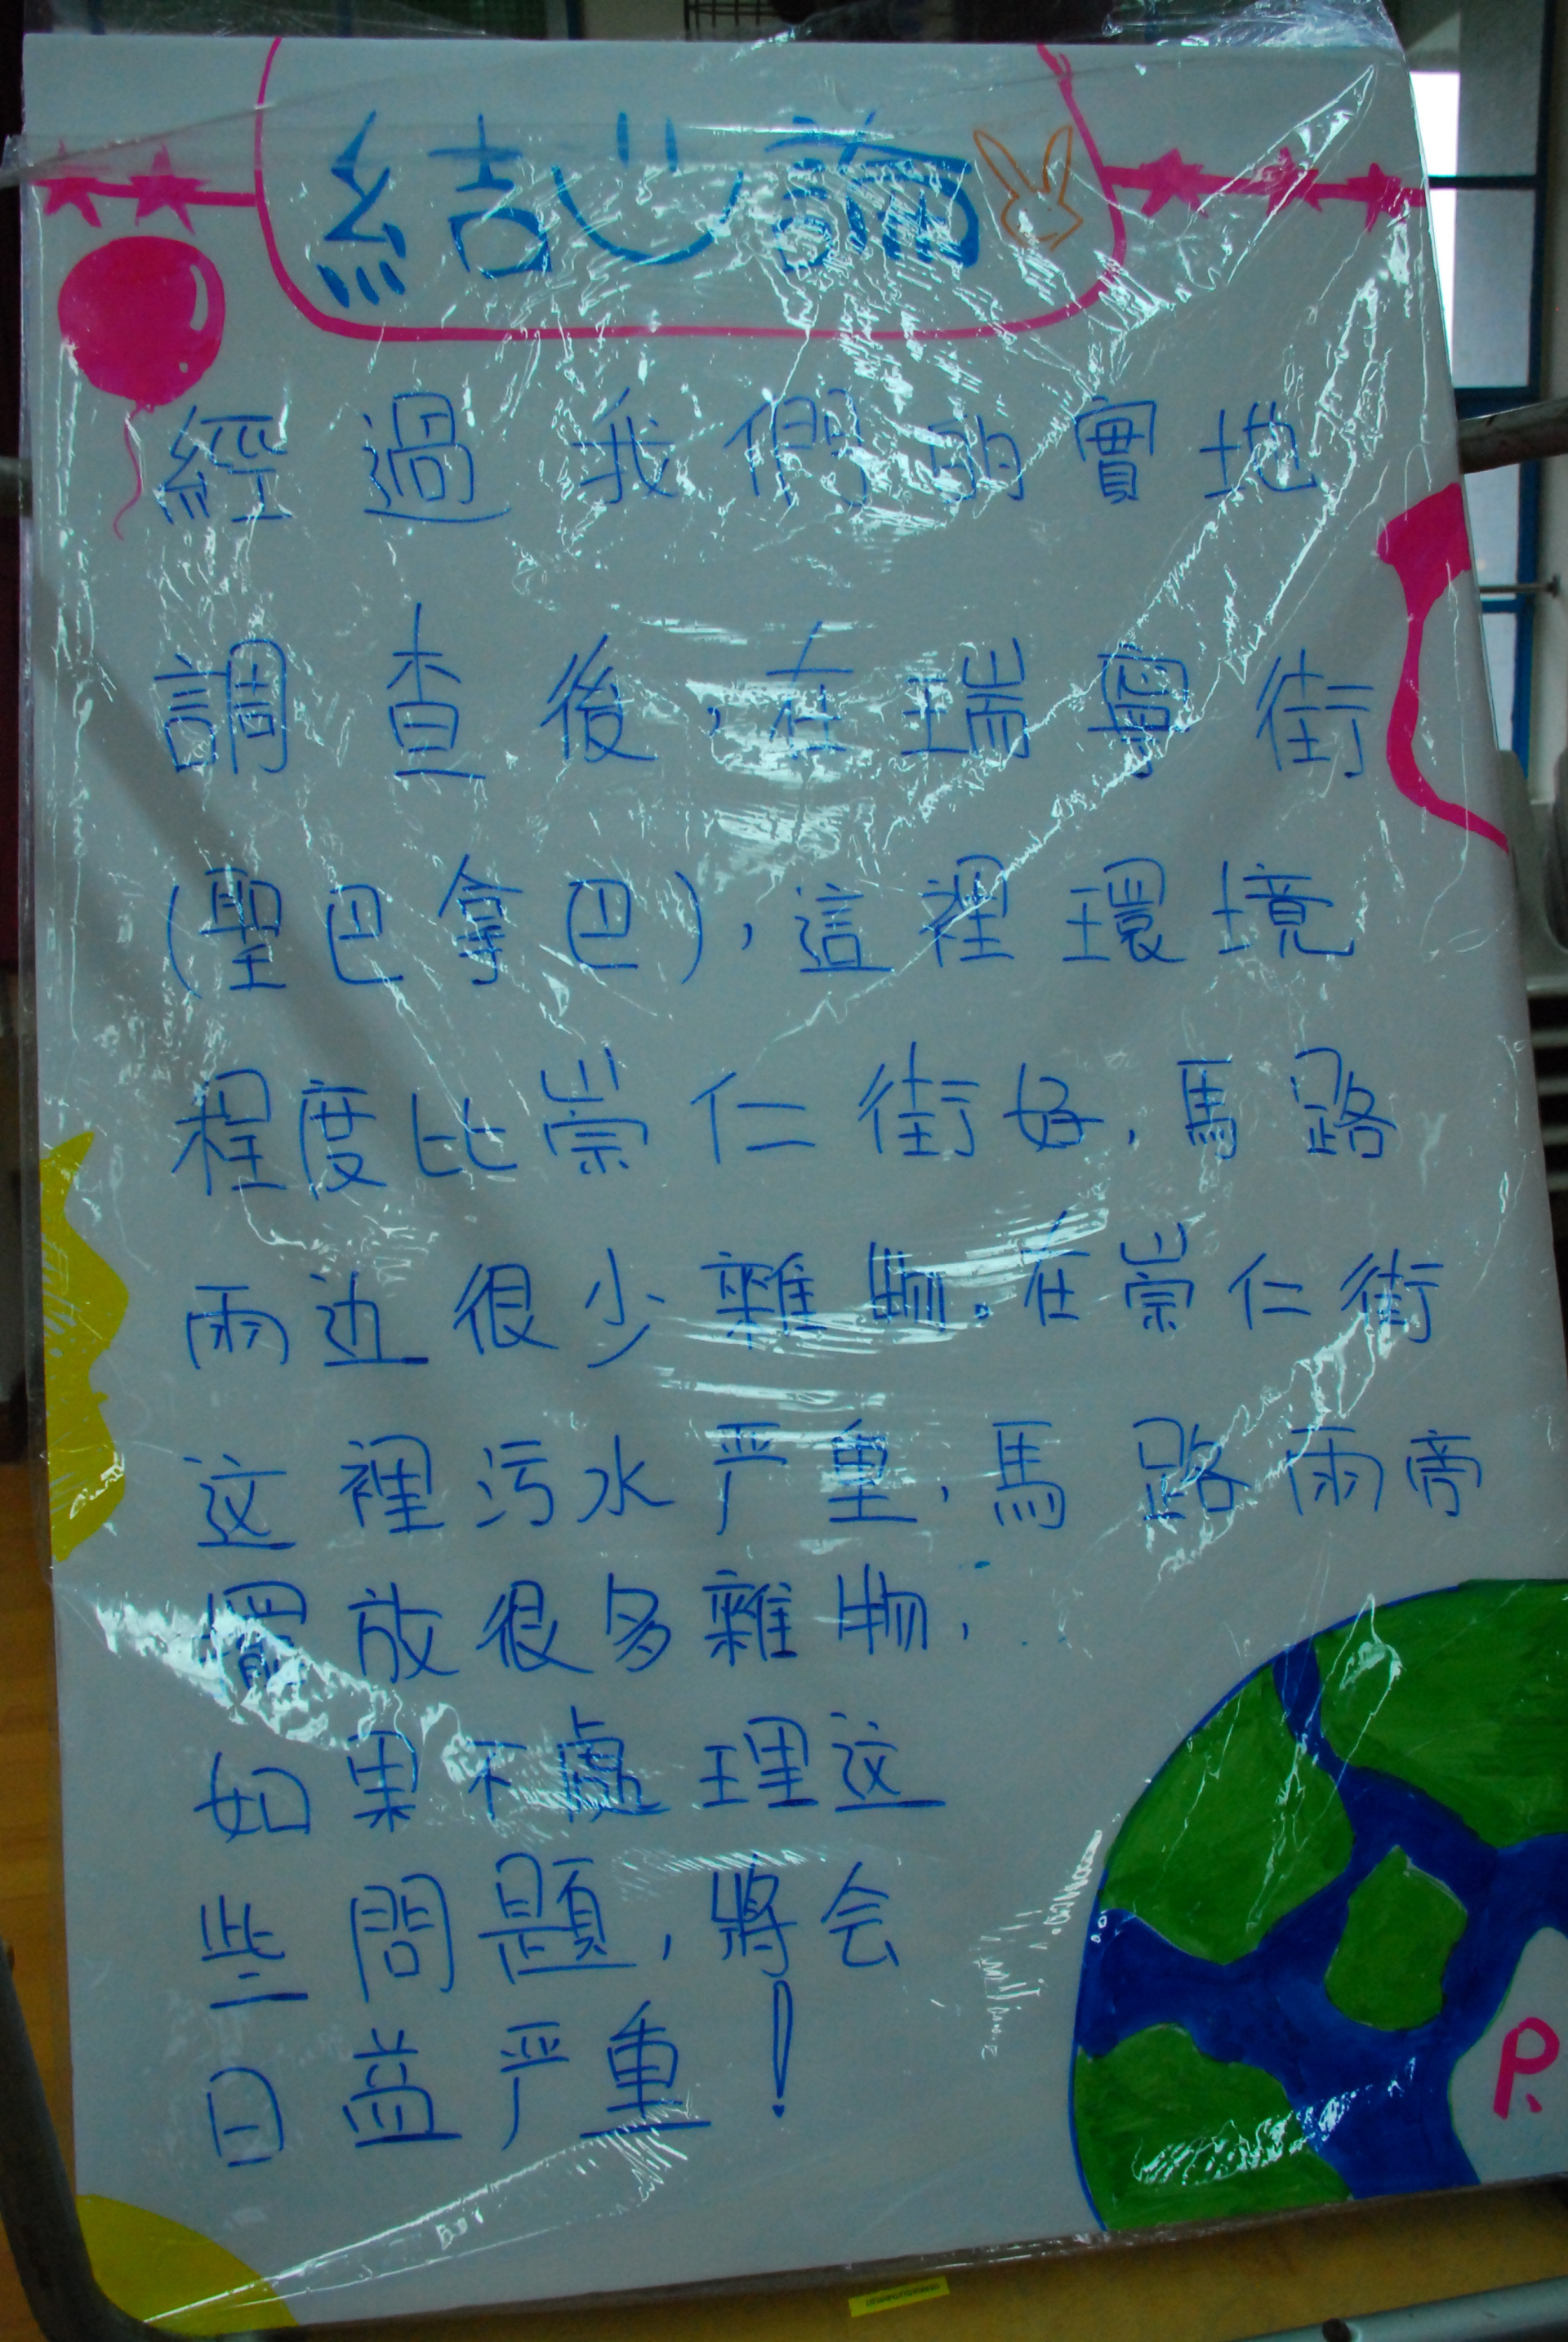 結論
經過我們的實地
調查後,在瑞寧街
(聖巴拿巴),這裡環境
程度比崇仁街好,馬路
兩边很少雜物.在崇仁街
这裡污水严重,馬路兩旁
擺放很多雜物,
如果不處理这
些問題,將会
日益严重!
P.